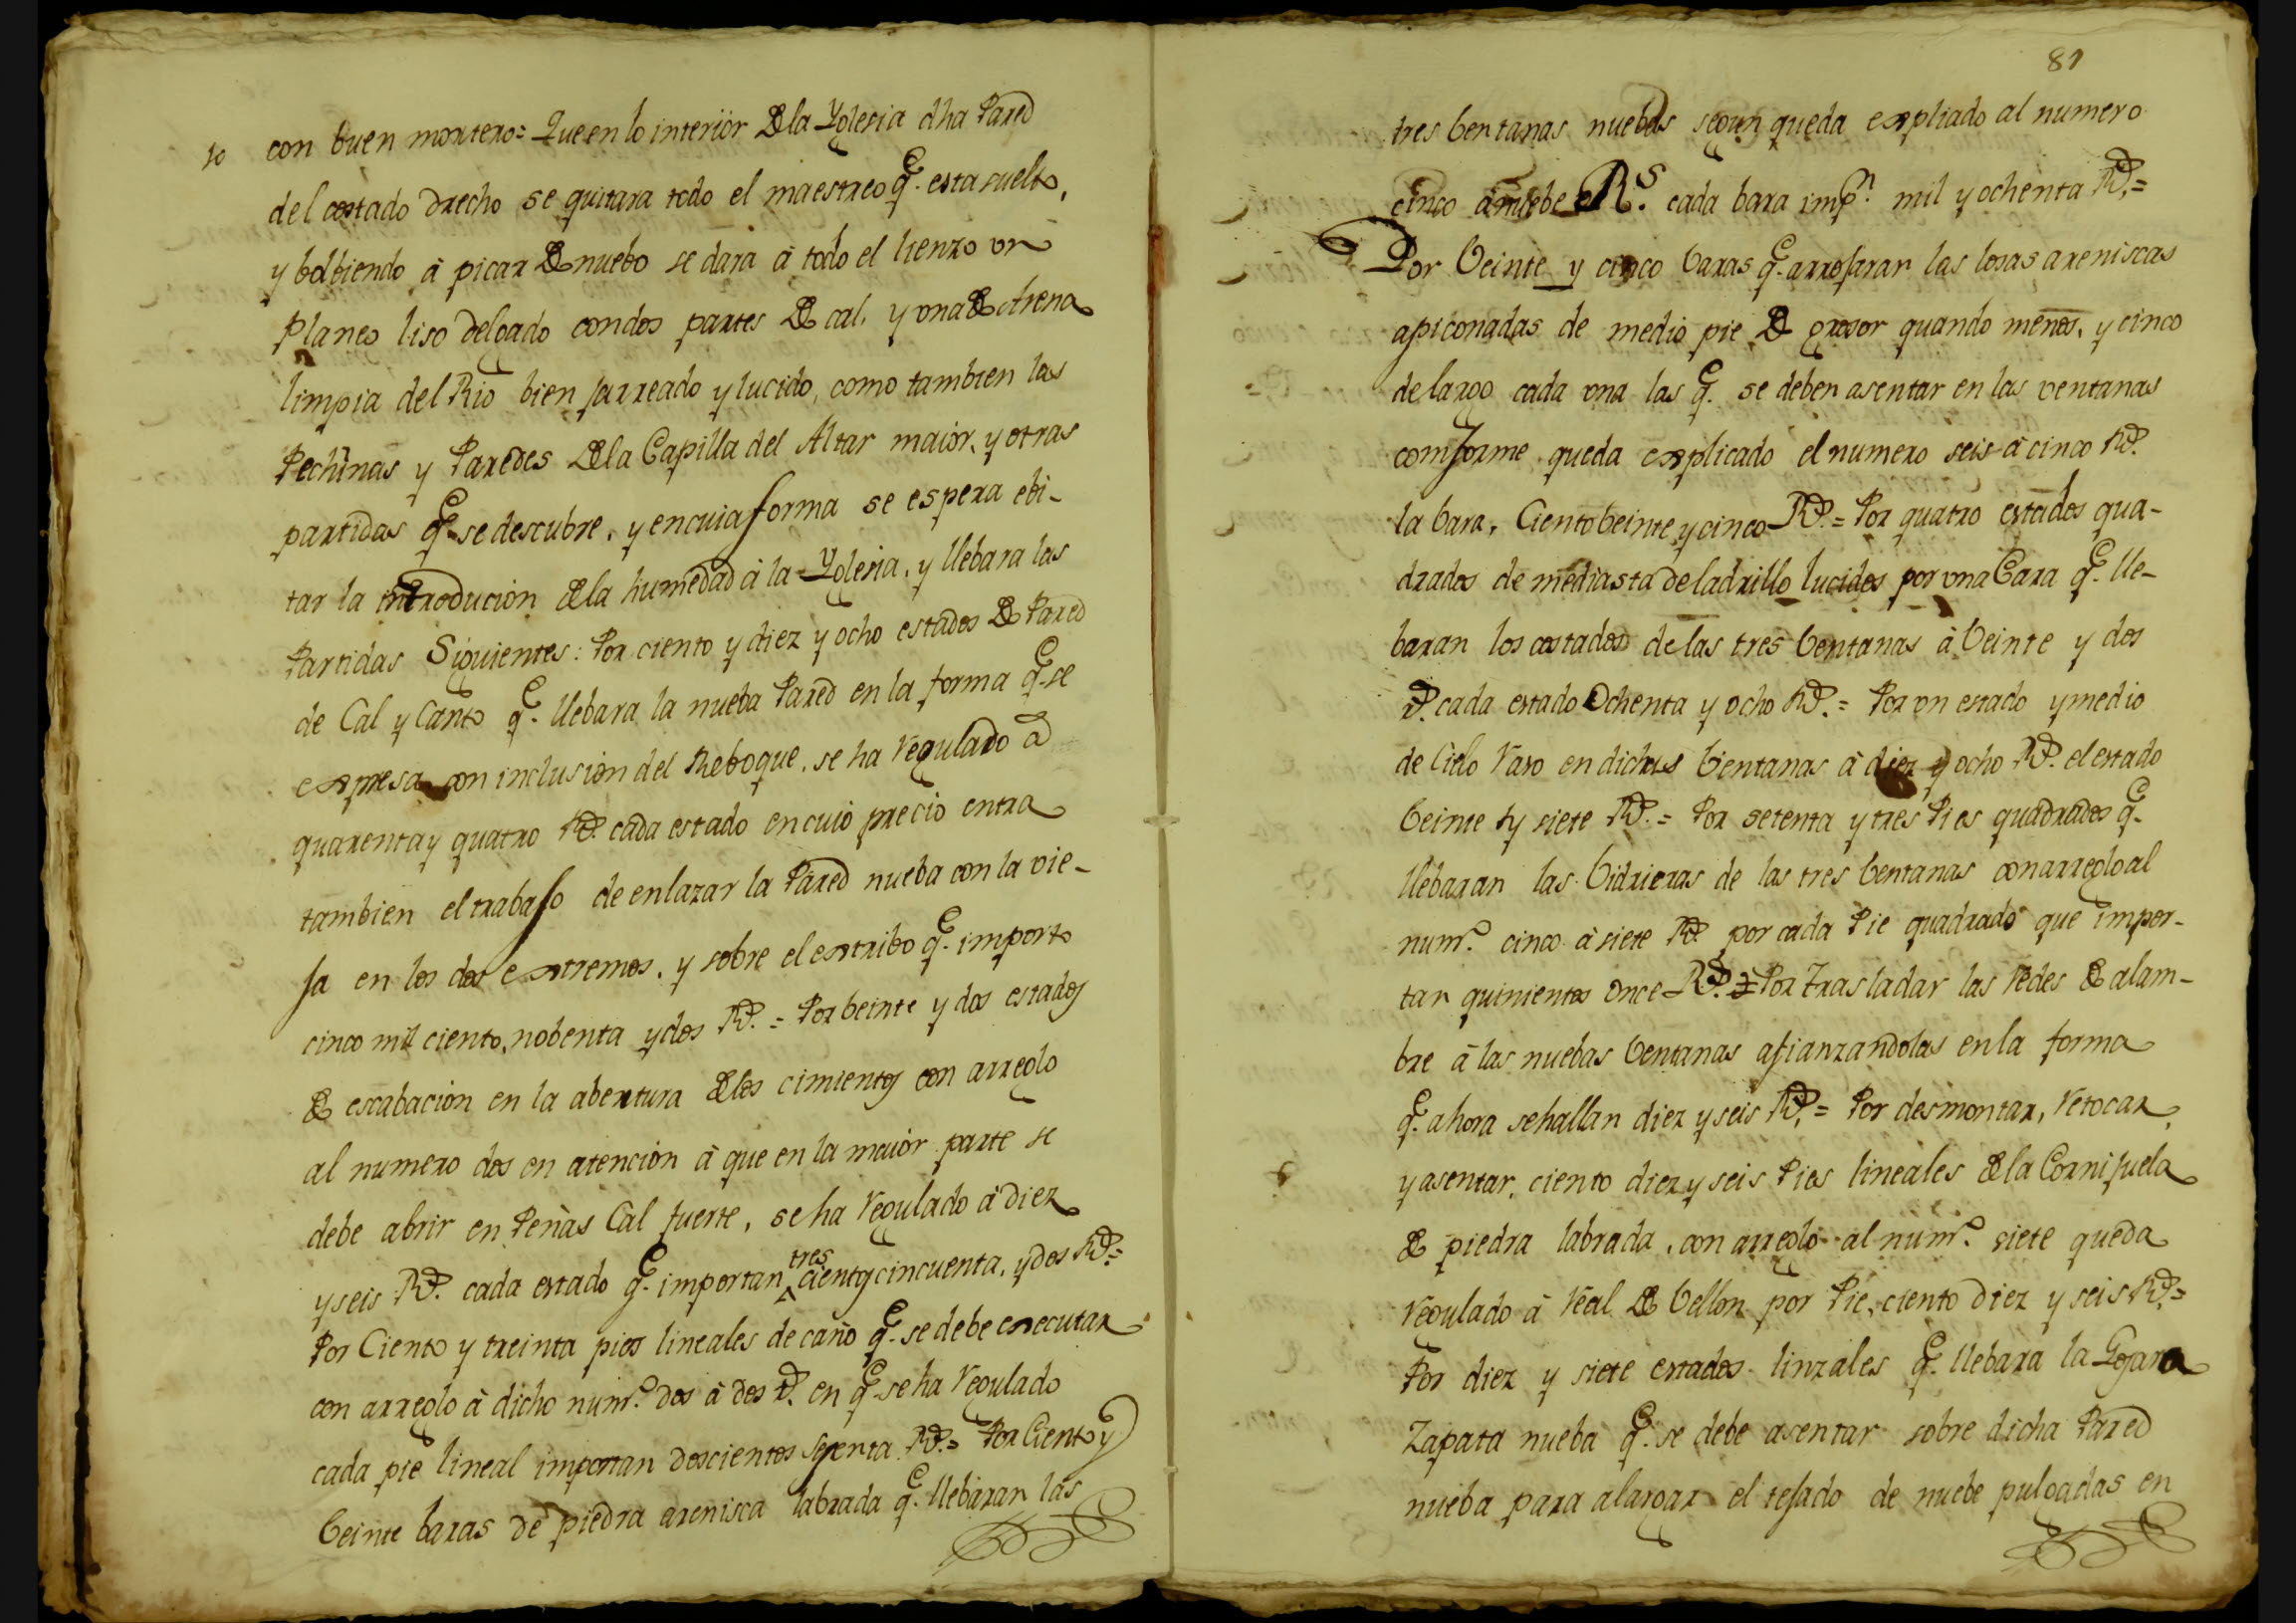 10 con buen mortero= Que en lo interiòr de la Yglesia dha Pared
del costado drecho se quitara todo el maestreo q.e esta suelto,
y bolbiendo à picar de nuebo se dara à todo el lienzo vn
planeo liso delgado con dos partes de cal, y vna de Arena
limpia del Rio bien jarreado y lucido, como tambien las
Pechinas y Paredes de la Capilla del Altar maior, y otras
partidas q.e se descubre, y en cuia forma se espera ebi-
tar la introduciòn de la humedad à la Yglesia, y llebara las
Partidas Siguientes: Por ciento y diez y ocho estados de Pared
de Cal y Canto q.e llebara la nueba Pared en la forma q.e se
expresa con inclusiòn del Reboque, se ha regulado à
quarenta y quatro Rs. cada estado en cuio precio entra
tambien el trabajo de enlazar la Pared nueba con la vie-
ja en los dos extremos, y sobre el estribo q.e importo
cinco mil ciento, nobenta y dos Rs. = Por beinte y dos estados
de escabaciòn en la abertura de los cimientos con arreglo
al numero dos en atenciòn à que en la maiòr parte se
debe abrir en Peñas Cal fuerte, se ha regulado à diez
tres
y seis Rs. cada estado q.e importan cientos cincuenta, y dos Rs.=
Por Ciento y treinta pies lineales de caño q.e se debe executar
con arreglo à dicho num.o dos à dos rs. en q.e se ha regulado
cada pie lineal importan doscientos sesenta Rs.= Por Ciento y
beinte baras de piedra arenisca labrada q.e llebaran las
81
tres bentanas nuebas segun queda expliado al numero
cinco à nuebe Rs. cada bara imp.n mil y ochenta Rs.=
Por Veinte y cinco baras q.e arrojaran las losas areniscas
apiconadas de medio pie de grosor quando menos, y cinco
de largo cada vna las q.e se deben asentar en las ventanas
comforme queda explicado el numero seis à cinco Rs.
la bara, Ciento beinte y cinco Rs.= Por quatro estados qua-
drados de mediasta de ladrillo lucidos por vna Cara q.e lle-
baran los costados de las tres bentanas à Veinte y dos
rs. cada estado Ochenta y ocho Rs.= Por vn estado y medio
de Cielo raso en dichas bentanas à diez y ocho Rs. el estado
beinte y siete Rs.= Por setenta y tres Pies quadrados q.e
llebaran las bidrieras de las tres bentanas con arreglo al
num.o cinco à siete Rs. por cada Pie quadrado que impor-
tan quinientos once Rs.= Por trasladar las redes de alam-
bre à las nuebas bentanas afianzandolas en la forma
q.e ahora se hallan diez y seis Rs.= Por desmontar, retocar,
y asentar, ciento diez y seis Pies lineales de la Cornijuela
de piedra labrada, con arreglo al num.o siete queda
regulado à real de Vellon por Pie, ciento diez y seis Rs.=
Por diez y siete estados linzales q.e llebara la
Zapata nueba q.e se debe asentar sobre dicha Pared
nueba para alargar el tejado de nuebe pulgadas en